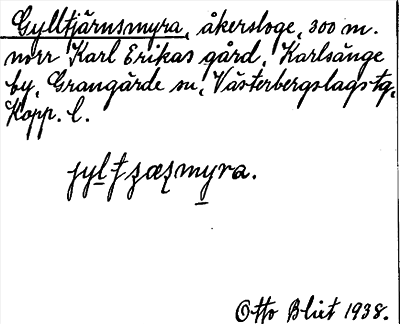 Gylltjärnsmyra, åkersloge, 300 m.
norr Karl Erikas gård, Karlsänge
by, Grangärde sn, Västerbergslags tg,
Kopp. l.
Otto Blixt 1938.